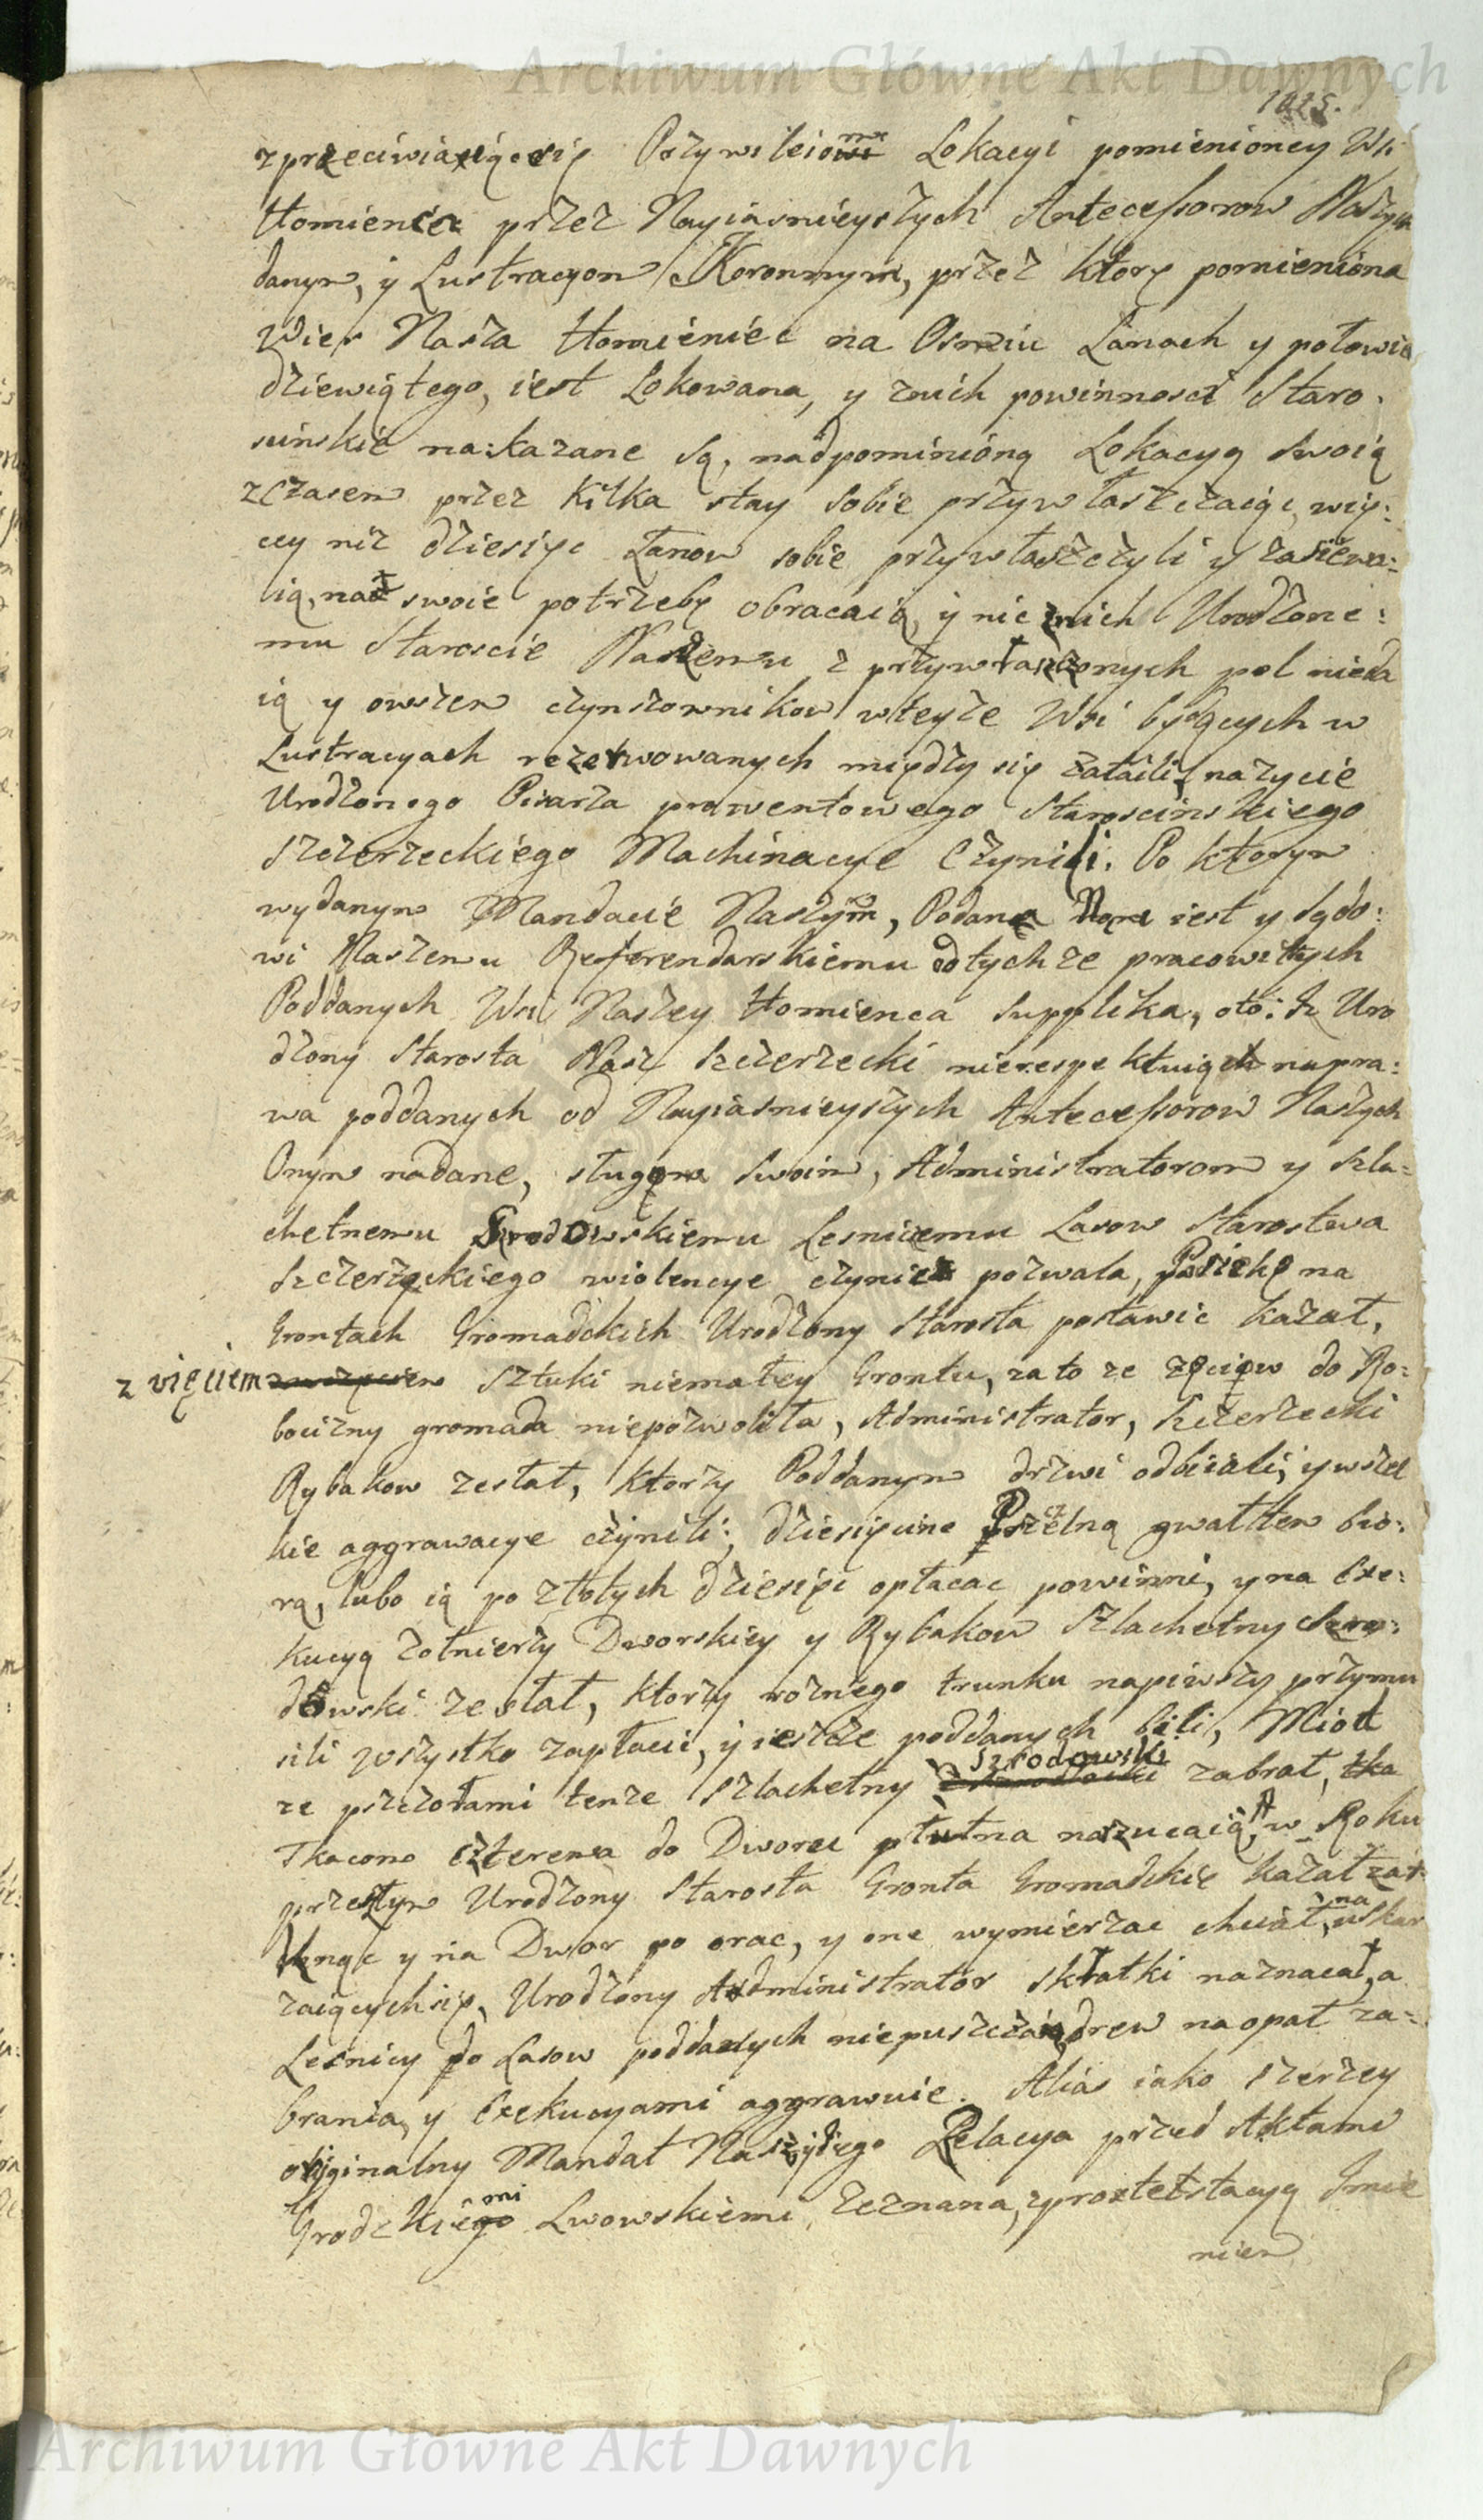 Archiwum Główne Akt Dawnych
1025.
zprzeciwiaiącesię Przywileiom Lokacyi pomienioney Wsi
Tłomienca przez Nayiasnieyszych Antecessorow Naszych
danym, y Lustracyom Koronnym, przez ktorę pomieniona
Wies Nasza Tłomieniec na Osmiu Łanach y połowie
dziewiątego, iest Lokowana, y znich powinnosci Staro-
scinskie nakazane są, nadpominioną Lokacyą swoią
zczasem przez kilka stay sobie przywłaszczaiąc, wię:
cey niz dziesięc Łanow sobie przywłaszczyli y zasiewa:
ią, na swoie potrzeby obracaią, y nic znich Urodzone:
mu Staroscie Naszemu z przywłaszczonych pol nieda
ią y owszem czynszownikow wteyze Wsi będących w
Lustracyach rezerwowanych między się zataili, nazycie
Urodzonego Pisarza prowentowego Staroscinskiego
Szczerzeckiego Machinacye Czynili. Po ktorym
wydanym Mandacie Naszym, Podana Nam iest y Sądo:
wi Naszemu Referendarskiemu odtychze pracowitych
Poddanych Wsi Naszey Tłomienca Supplika, oto: Iz Uro
dzony Starosta Nasz Szczerzecki nierespektuiąc na pra:
wa poddanych od Nayiasnieyszych Antecessorow Naszych
Onym nadane, sługom Swoim, Administratorom y szla-
chetnemu Szrodowskiemu Lesniczemu Lasow Starostwa
Szczerzeckiego wiolencye czynic pozwala, Pasiekę na
Grontach Gromadzkich Urodzony Starosta postawic kazał,
z vięciem sztuki niemałey Grontu, zato ze zęciow do Ro:
bocizny gromada niepozwoliła, Administrator, Szczerzecki
Rybakow zesłał, ktorzy Poddanym drzwi odbiiali, y wszel
kie aggrawacye czynili; dziesięcine Pszczelną gwałtem bio:
rą, lubo ią po złotych dziesięc opłacac powinni, y na Exe:
kucyą zołnierzy Dworskiey y Rybakow Szlachetny Szro:
dowski zesłał, ktorzy roznego trunku napiwszy przymu
sili wszystko zapłacic, y ieszcze poddanych bili, Miod
ze pszczołami tenze Szlachetny Szrodowski zabrał,
Tkacono czterema do Dworu płutna narzucaią, w Roku
przeszłym Urodzony Starosta Gronta Gromadzkie kazał zat-
knąc y na Dwor po orac, y one wymierzac chciał, na uskar
zaiącychsię, Urodzony Administrator składki naznaczał, a
Lesnicy do Lasow poddanych niepuszczaią, drew na opał za-
brania, y Exekucyami aggrawuie. Alias iako szerzey
oryginalny Mandat Nasz y iego Relacya przed Aktami
Grodzkiemi Lwowskiemi, Zeznana, zprotestacyą Imie
niem
Archiwum Główne Akt Dawnych